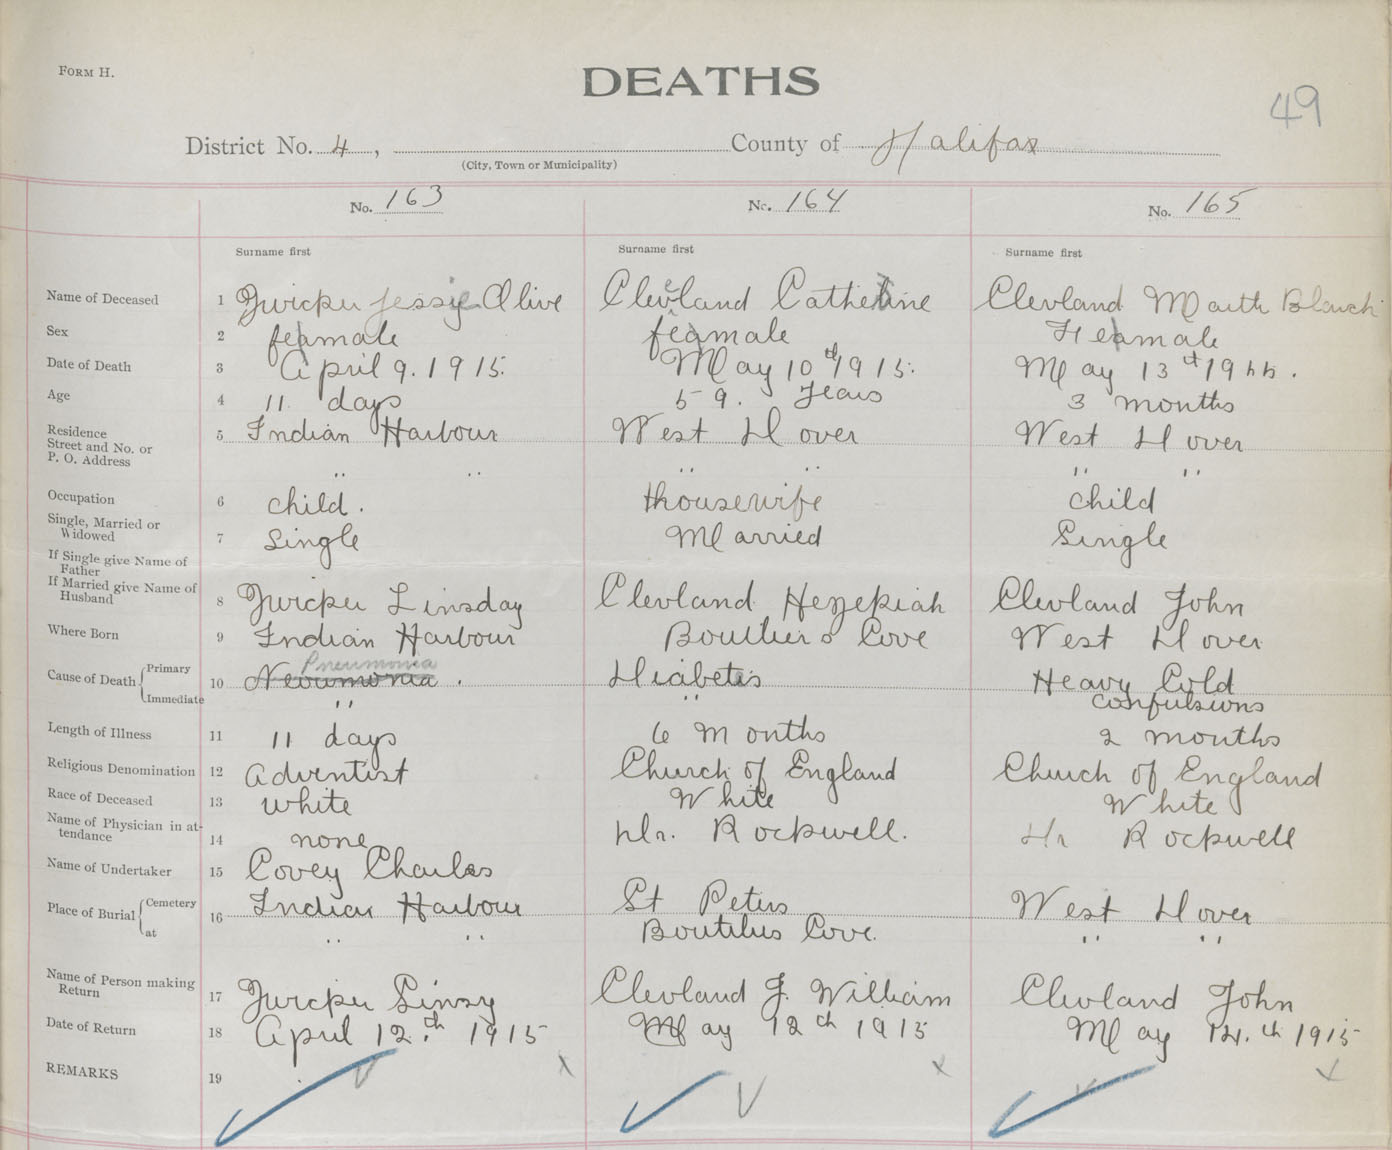 FORM H.
DEATHS
49
District No. 4, County of Halifax
(City, Town or Municipality)
No. 163 No. 164 No. 165
Surname first Surname first Surname first
Name of Deceased 1 Zwicker Jessie Olive Clevland Catherine Clevland Blanch
Sex 2 female female Female
Date of Death 3 April 9. 1915. May 10th 1915. May 13th
Age 4 11 days 59. Years 3 months
Residence
Street and No. or
P. O. Address 5 Indian Harbour West Dover West Dover
" " " " " "
Occupation 6 child. housewife child
Single, Married or
Widowed 7 Single Married Single
If Single give Name of
Father
If Married give Name of
Husband 8 Zwicker Linsday Clevland Hezekiah Clevland John
Where Born 9 Indian Harbour Boutliers Cove West Dover
Pneumonia
Cause of Death { Primary Immediate 10 Neoumonia. Diabetis Heavy Cold
" " Confulsions
Length of Illness 11 11 days 6 Months 2 months
Religious Denomination 12 Adventist Church of England Church of England
Race of Deceased 13 White White White
Name of Physician in at-
tendance 14 none Dr. Rockwell. Dr Rockwell
Name of Undertaker 15 Covey Charles
Place of Burial { Cemetery at 16 Indian Harbour St Peters West Dover
" " Boutilus Cove. " "
Name of Person making
Return 17 Zwicker Linsy Clevland J. William Clevland John
Date of Return 18 April 12.th 1915 May 12th 1915 May 14.th 1915
REMARKS 19